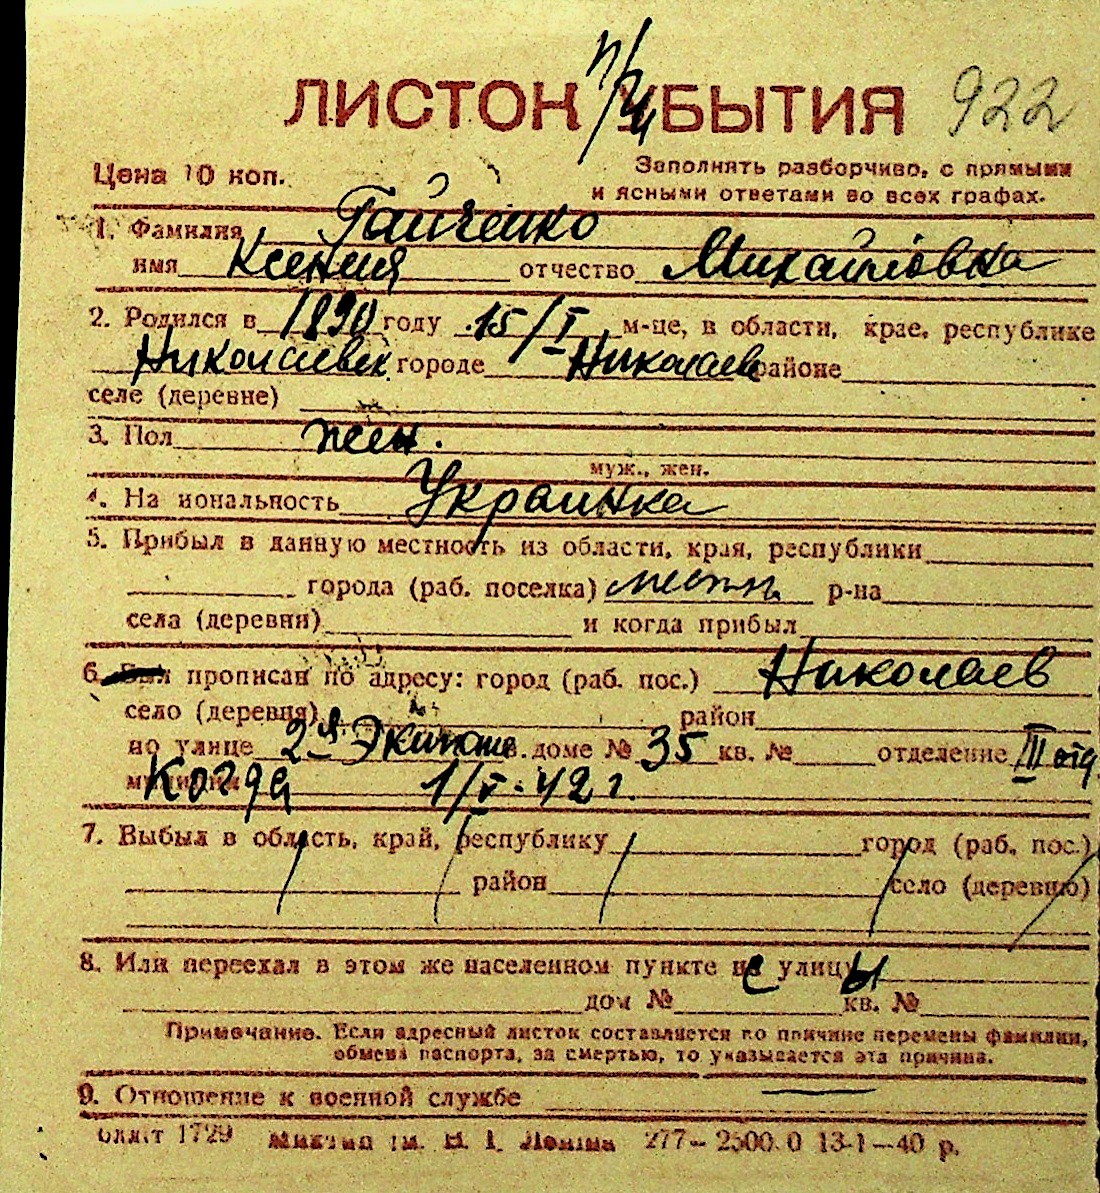 ЛИСТОК УБЫТИЯ 922
Цена 10 коп. Заполнять разборчиво, с прямыми
и ясными ответами во всех графах.
1. Фамилия Гайченко
имя Ксения отчество Михайловна
2. Родился в 1890 году 15/I м-це, в области, крае, республике
Николаевск городе Николаев районе
селе (деревне)
3. Пол жен.
муж., жен.
4. На иональность Украинка
5. Прибыл в данную местность из области, края, республики
города (раб. поселка) местн. р-на
села (деревни) и когда прибыл
6. Был прописан по адресу: город (раб. пос.) Николаев
село (деревня) район
по улице 2я Экипаж. доме № 35 кв. № отделение III отд
милиции Когда 1/V-42 г.
7. Выбыл в область, край, республику город (раб. пос.)
район село (деревню)
8. Или переехал в этом же населенном пункте с улицы
дом № кв. №
Примечание. Если адресный листок составляется по причине перемены фамилии,
обмена паспорта, за смертью, то указывается эта причина.
9. Отношение к военной службе —
1729 ім. В. І. Леніна 277-2500.0 13-1-40 р.